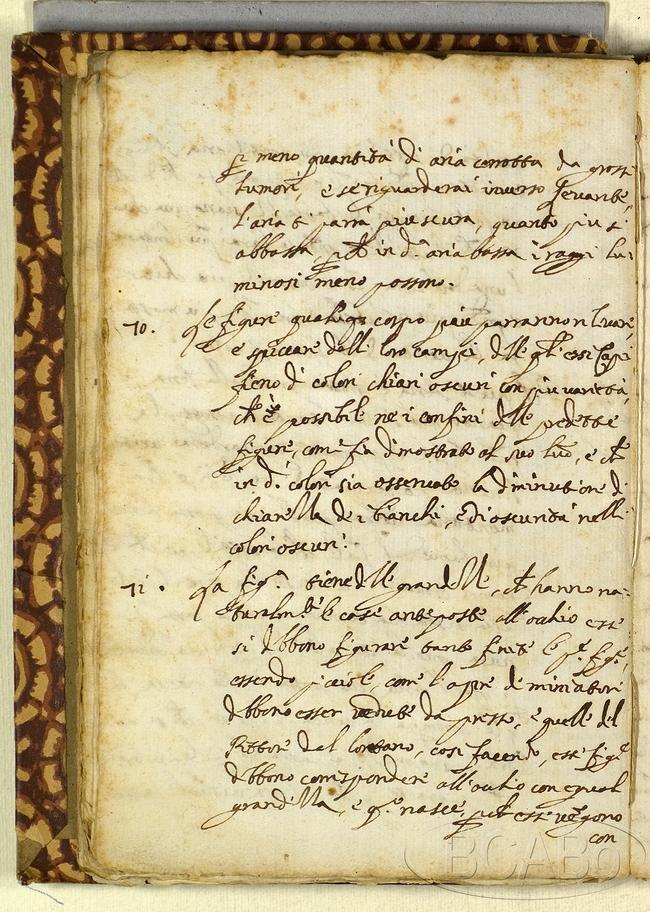 p meno quantità di aria corrotta da grossi
humori, e se riguarderai inverso levante,
l'aria ti parrà più scura, quanto più si
abbassa, in d.ª aria bassa i raggi lu-
minosi meno possono.
70. Le figure corpo più parranno rilevare,
e spiccare dalli loro campi, delli
sieno di colori chiari oscuri con più varietà,
che è possibile ne i confini delle predette
figure, come fia dimostrato al suo , e che
in d.i colori sia osservato la diminutione di
chiarezza de i bianchi, e di oscurità nelli
colori oscuri.
71. La fig.ª delle grandezze, che hanno na-
turalm.te le cose anteposte all'occhio esse
si debbono figurare tanto finite le p.e fig.e
essendo picciole, come l'opre de miniatori
debbono esser vedute da presso, e quelle del
Pittore dal lontano, così facendo, esse fig.e
debbono corrispondere all'occhio con egual
grandezza, e q.o nasce, che esse vengono
con
BCABo